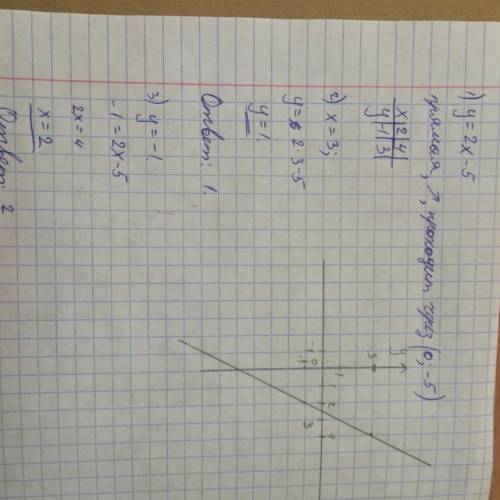 1) y = 2x - 5
прямая, ↗, проходит через (0; -5)
x | 2 | 4
y | -1 | 3
2) x = 3;
y = 2·3-5
y = 1.
Ответ: 1.
3) y = -1.
-1 = 2x-5
2x = 4
x = 2
Ответ: 2
y
3
1
-1 0 1 2 3
-1